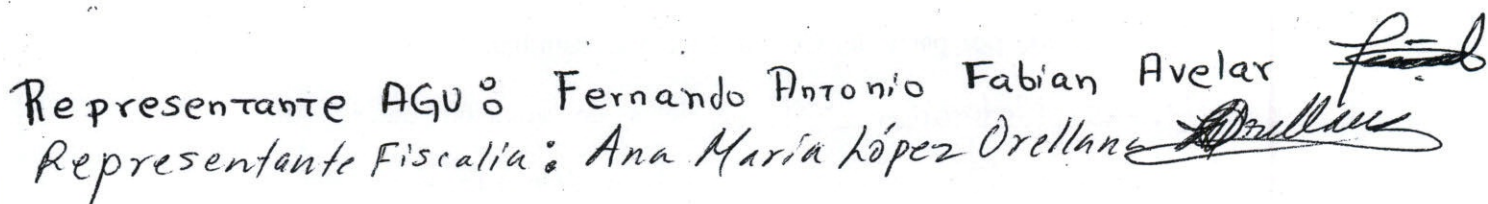 Representante AGU: Fernando Antonio Fabian Avelar
Representante Fiscalia: Ana María López Orellana